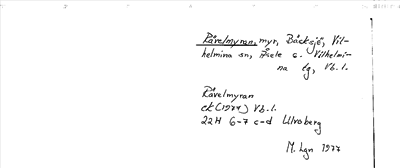 Råvelmyran, myr, Bäcksjö, Vil-
helmina sn, Åsele o. Vilhelmi-
na lg, Vb. l.
Råvelmyran
ek (1971) Vb. l.
22H 6-7 c-d Ulvoberg
M. Lgn 1977